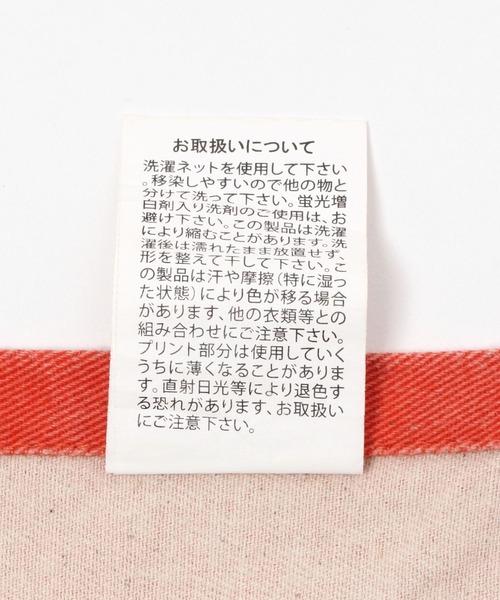 お取扱いについて
洗濯ネットを使用して下さい
。移染しやすいので他の物と
分けて洗って下さい。蛍光増
白剤入り洗剤のご使用は、お
避け下さい。この製品は洗濯
により縮むことがあります。洗
濯後は濡れたまま放置せず、
形を整えて干して下さい。こ
の製品は汗や摩擦(特に湿っ
た状態)により色が移る場合
があります、他の衣類等との
組み合わせにご注意下さい。
プリント部分は使用していく
うちに薄くなることがありま
す。直射日光等により退色す
る恐れがあります、お取扱い
にご注意下さい。